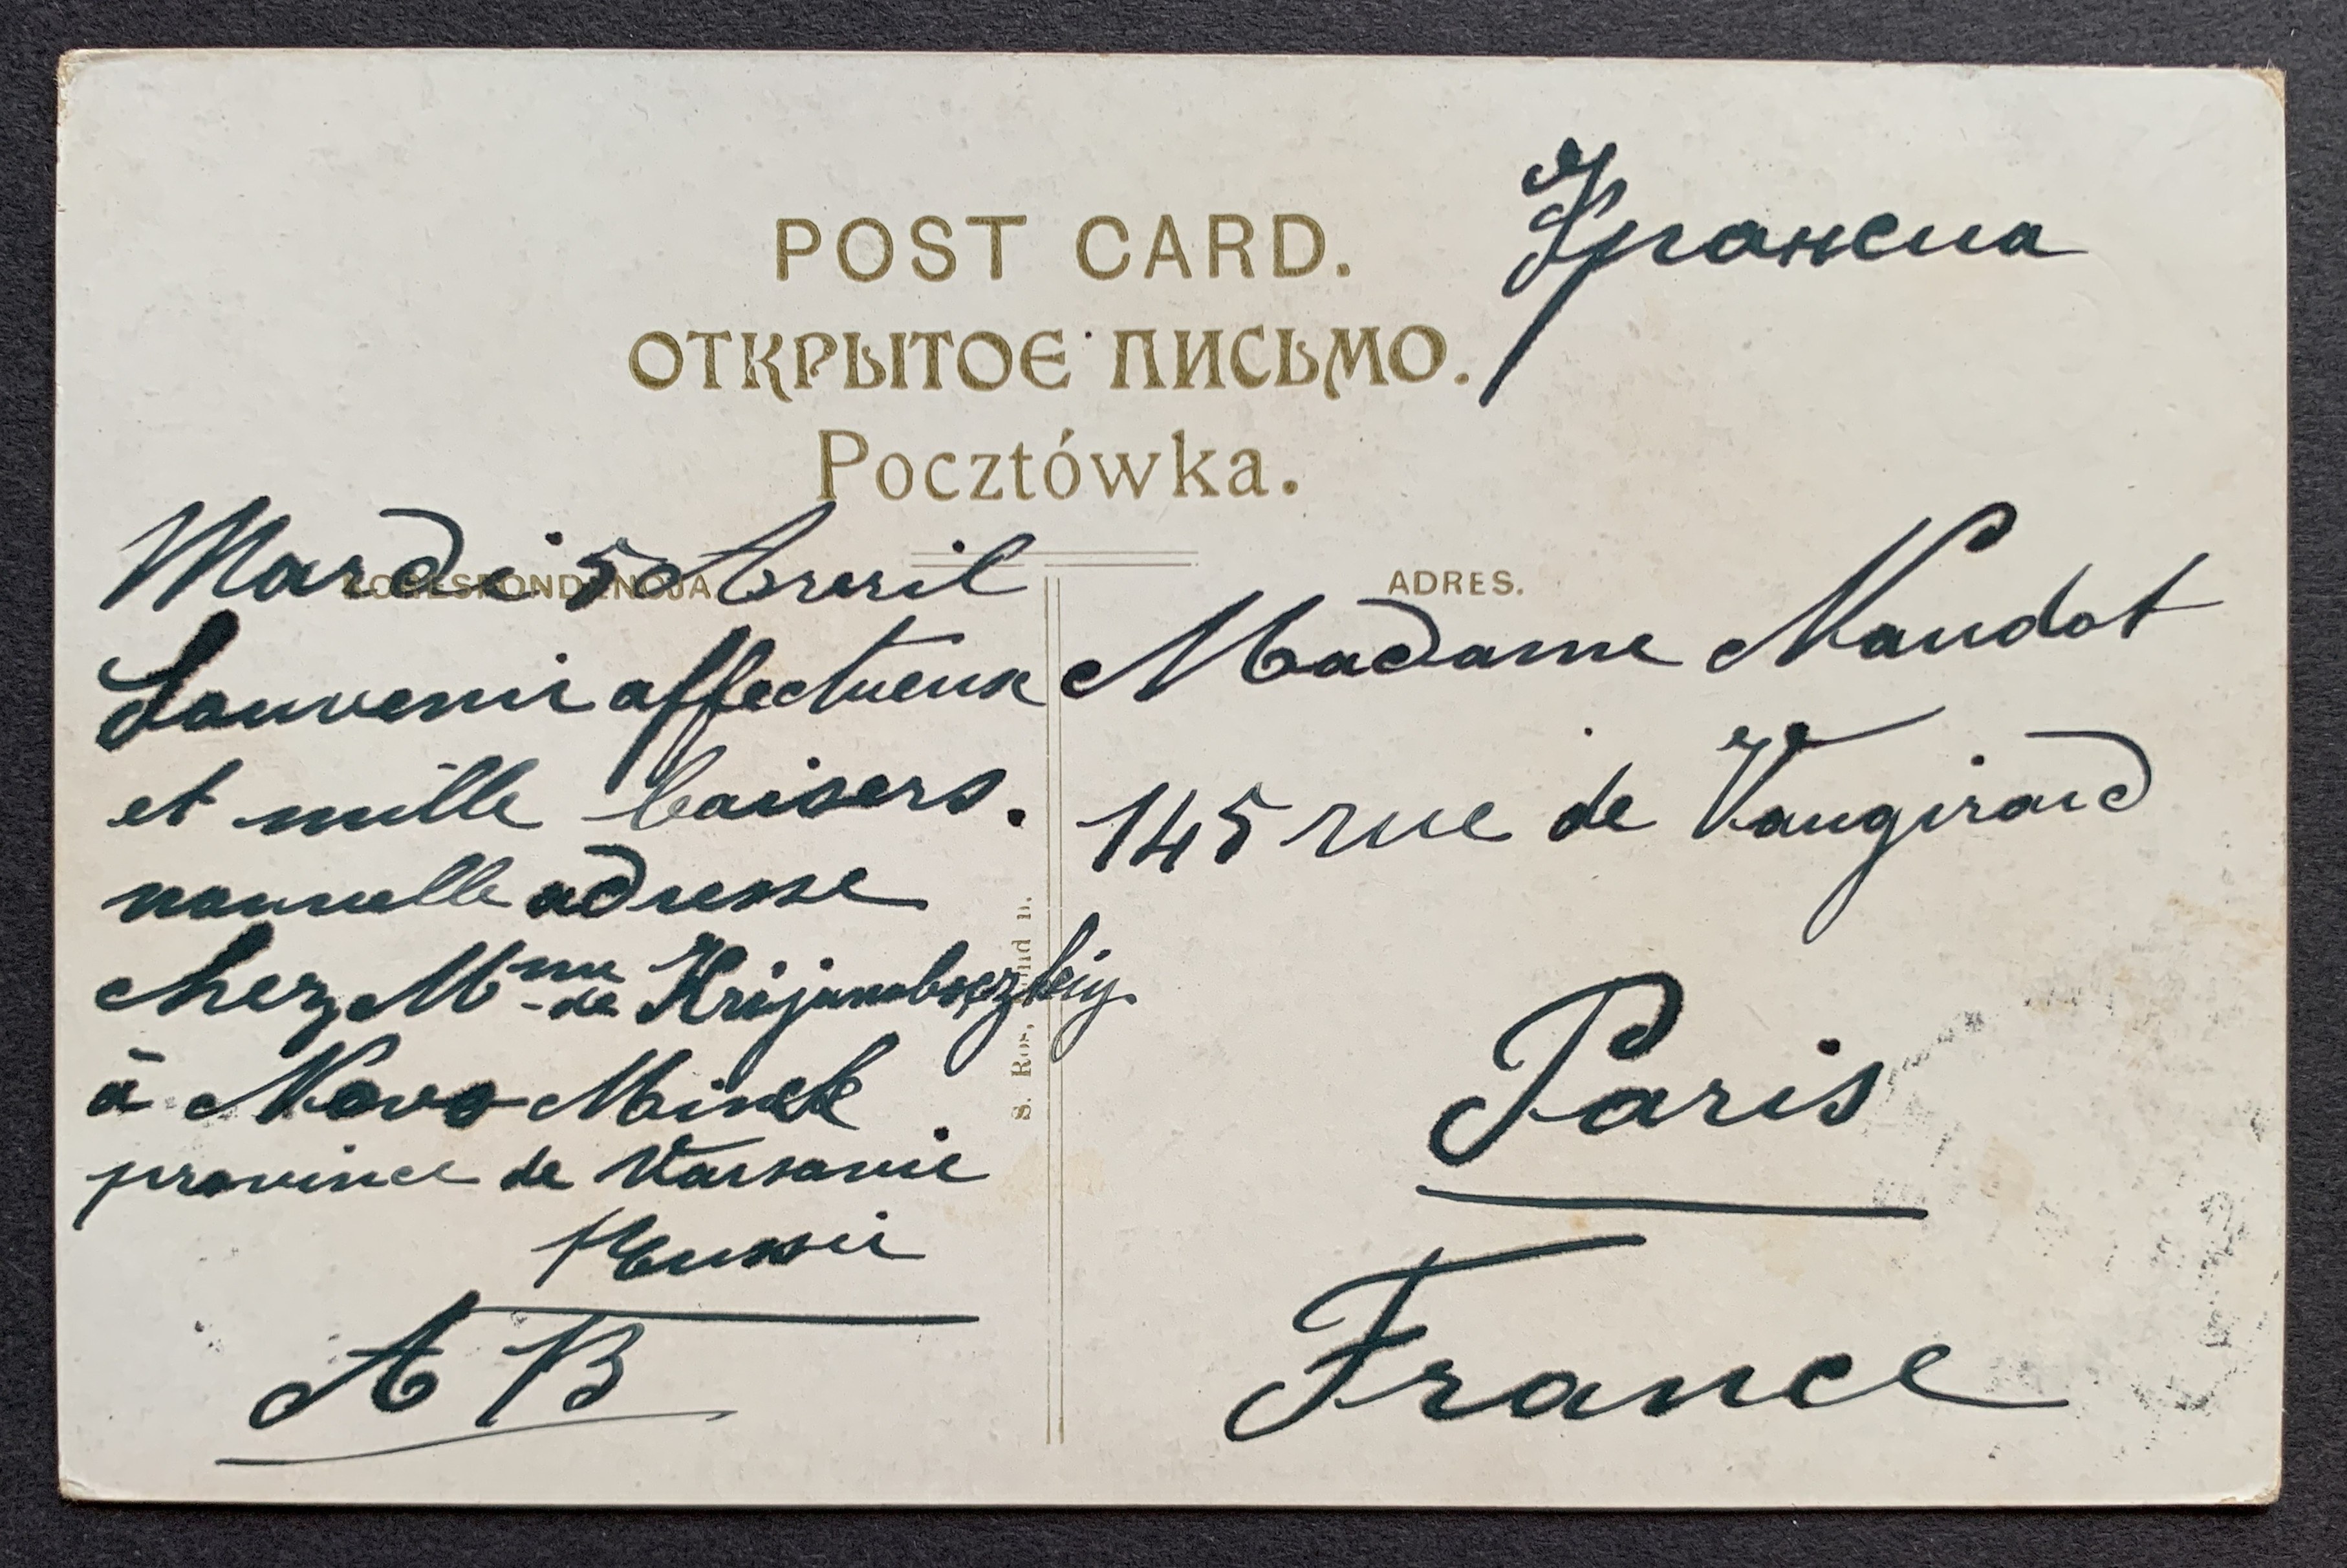 POST CARD.
ОТКРЫТОЕ ПИСЬМО.
Pocztówka.
Франсиа
KORESPONDENCJA
ADRES.
Mardi 5 Avril
Souvenir affectueux
et mille baisers.
nouvelle adresse
chez Mme de
à Novo Minsk
province de Varsovie
Russie
A B
Madame Naudot
145 rue de Vaugirard
Paris
France